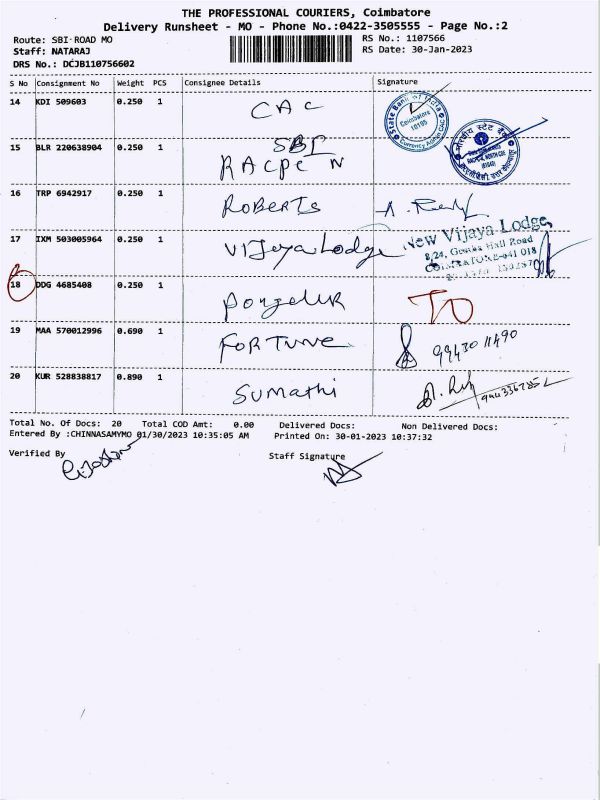 THE PROFESSIONAL COURIERS, Coimbatore
Delivery Runsheet - MO - Phone No.:0422-3505555 - Page No.:2
Route: SBI-ROAD MO RS No.: 1107566
Staff: NATARAJ RS Date: 30-Jan-2023
DRS No.: DCJB110756602
S No Consignment No Weight PCS Consignee Details Signature
14 KDI 509603 0.250 1 CAC
State Bank of India Coimbatore 10105 Currency Admin CAC
15 BLR 220638904 0.250 1 SBI RACPC N
भारतीय स्टेट बैंक
16 TRP 6942917 0.250 1 ROBERTS
17 IXM 503005964 0.250 1 Vijaya Lodge
New Vijaya Lodge,
8/24, Hall Road
COIMBATORE-641 018
18 DDG 4685408 0.250 1
19 MAA 570012996 0.690 1 FORTUNE 99430 11490
20 KUR 528838817 0.890 1 Sumathi
Total No. Of Docs: 20 Total COD Amt: 0.00 Delivered Docs: Non Delivered Docs:
Entered By :CHINNASAMYMO 01/30/2023 10:35:05 AM Printed On: 30-01-2023 10:37:32
Verified By Staff Signature